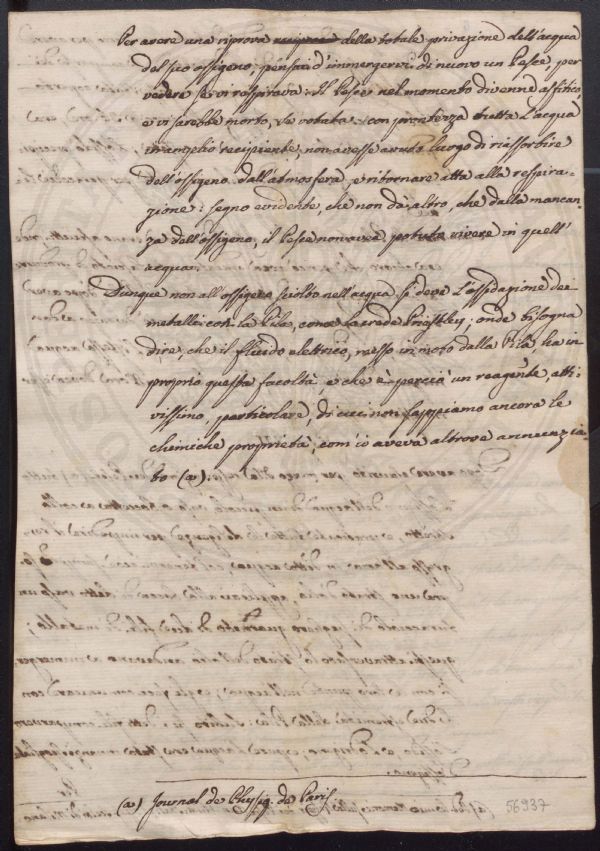 Per avere una riprova della totale privazione dell'acqua
del suo ossigeno, pensai d'immergervi di nuovo un Pesce, per
vedere se vi respirava: Il Pesce nel momento divenne asfitico,
e vi sarebbe morto, se votata con prontezza tutta l'acqua
in amplio recipiente, non avesse avuto luogo di riassorbire
dell'ossigeno dall'atmosfera, e ritornare atta alla respira-
zione: segno evidente, che non da altro, che dalla mancan-
za dell'ossigeno, il Pesce non aveva potuto vivere in quell'
acqua.
Dunque non all'ossigeno sciolto nell'acqua si deve l'ossidazione dei
metalli con la Pila, come la crede Priestley; onde bisogna
dire, che il fluido elettrico, messo in moto dalla Pila, ha in
proprio questa facoltà, e che è perciò un reagente, atti-
vissimo, particolare, di cui non sappiamo ancora le
chimiche proprietà, com'io aveva altrove annunzia-
to (a).
(a) Journal de Physiq. de Paris
56937